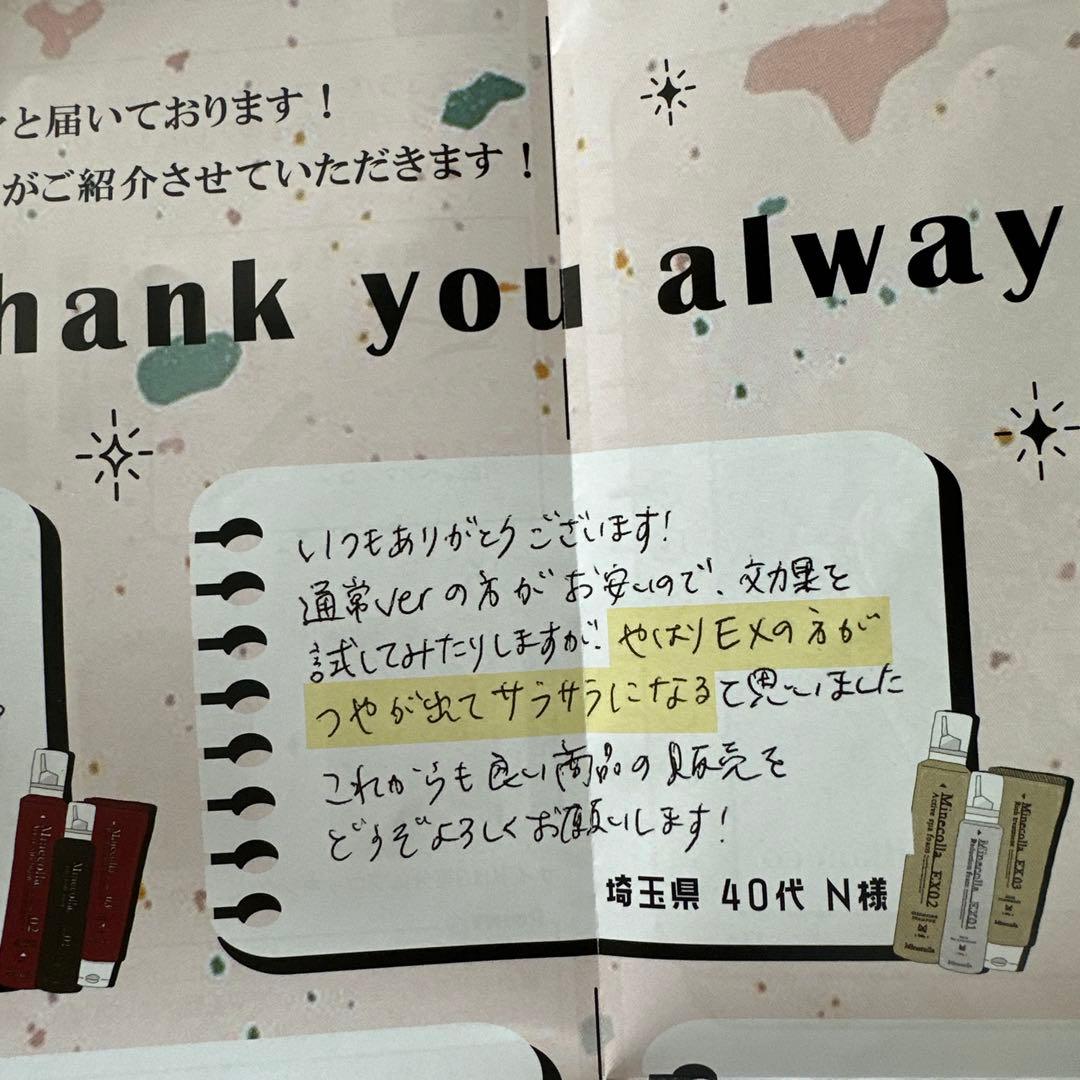 と届いております！
がご紹介させていただきます！
hank you alway
いつもありがとうございます！
通常verの方がお安いので、効果を
試してみたりしますが、やはりEXの方が
つやが出てサラサラになると思いました
これからも良い商品の販売を
どうぞよろしくお願いします！
埼玉県 40代 N様
Minecolla EX02
Active spa foam
Minecolla EX01
Minecolla EX03
Minecolla
Minecolla
02